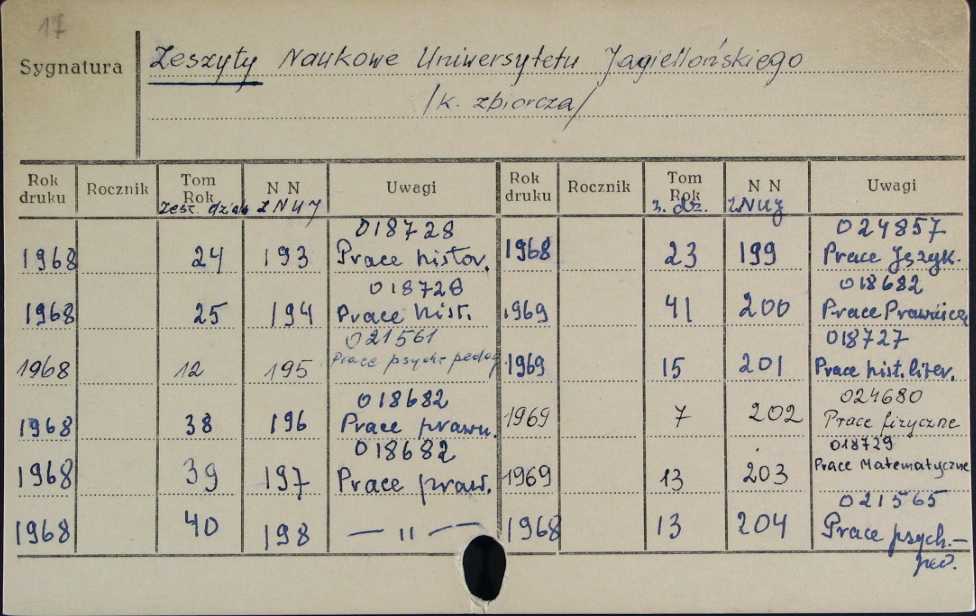 17
Sygnatura
Zeszyty Naukowe Uniwersytetu Jagiellońskiego
/k. zbiorcza/
Rok druku Rocznik Tom Rok N N Uwagi Rok druku Rocznik Tom Rok N N Uwagi
Zesz. działu ZNUJ z. dz. ZNUJ
018728 024857
1968 24 193 Prace histor. 1968 23 199 Prace Język.
018728 018682
1968 25 194 Prace hist. 1969 41 200 Prace Prawnicze
021561 018727
1968 12 195 Prace psych. pedag. 1969 15 201 Prace hist. liter.
018682 024680
1968 38 196 Prace prawn. 1969 7 202 Prace fizyczne
018682 018729
1968 39 197 Prace praw. 1969 13 203 Prace Matematyczne
021565
1968 40 198 — " — 1968 13 204 Prace psych.-
ped.